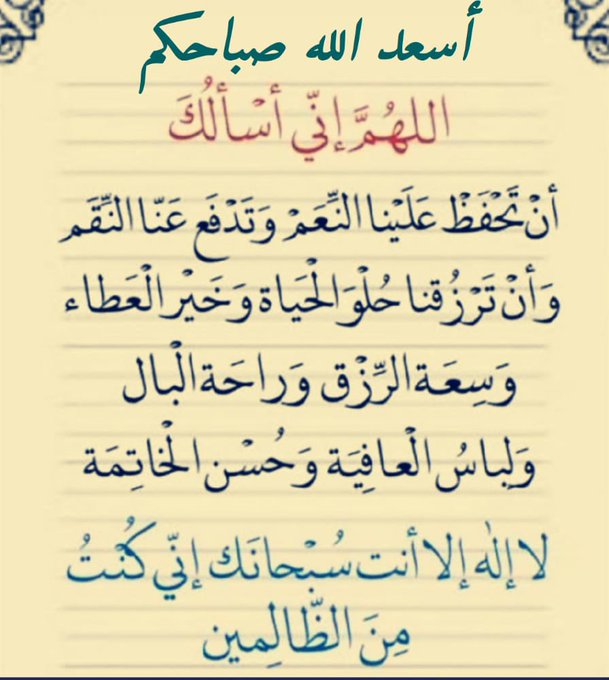 أسعد الله صباحكم
اللهُمَّ إنّي أسْألُكَ
أنْ تَحْفَظْ عَلَيْنا النِّعَمْ وَتَدْفَع عَنّا النِّقَم
وَأنْ تَرْزُقنا حُلْوَ الْحَياة وَخَيْر الْعَطاء
وَسِعَة الرِّزْق وَراحَة الْبال
وَلِباسُ الْعافِيَة وَحُسْن الْخاتِمَة
لا إلٰه إلا أنت سُبْحانَك إنّي كُنْتُ
مِنَ الظّالِمين